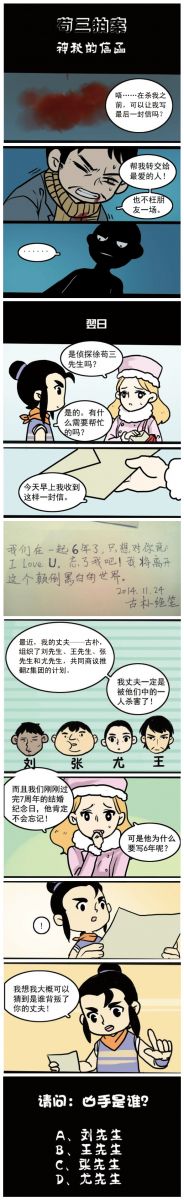 苟三拍案
神秘的信函
嘻……在杀我之
前，可以让我写
最后一封信吗？
帮我转交给
最爱的人！
也不枉朋
友一场。
……
翌日
是侦探徐苟三
先生吗？
是的。有什
么需要帮忙
的吗？
今天早上我收到
这样一封信。
我们在一起6年了，只想对你说
I Love U。忘了我吧！我将离开
这个颠倒黑白的世界。
2014.11.24
古朴绝笔
最近，我的丈夫——古朴，
组织了刘先生、王先生、张
先生和尤先生，共同商议推
翻Z集团的计划。
我丈夫一定是
被他们中的一
人杀害了！
刘 张 尤 王
而且我们刚刚过
完7周年的结婚
纪念日，他肯定
不会忘记！
可是他为什么
要写6年呢？
！
我想我大概可以
猜到是谁背叛了
你的丈夫！
请问：凶手是谁？
A、刘先生
B、王先生
C、张先生
D、尤先生